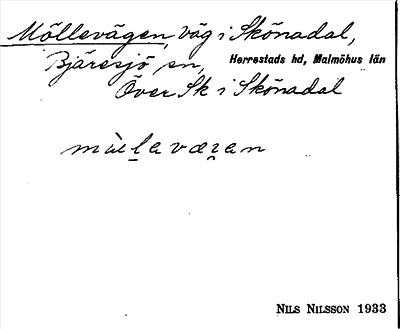 Möllevägen, väg i Skönadal,
Bjäresjö sn, Herrestads hd, Malmöhus län
Över Sk i Skönadal
NILS NILSSON 1933